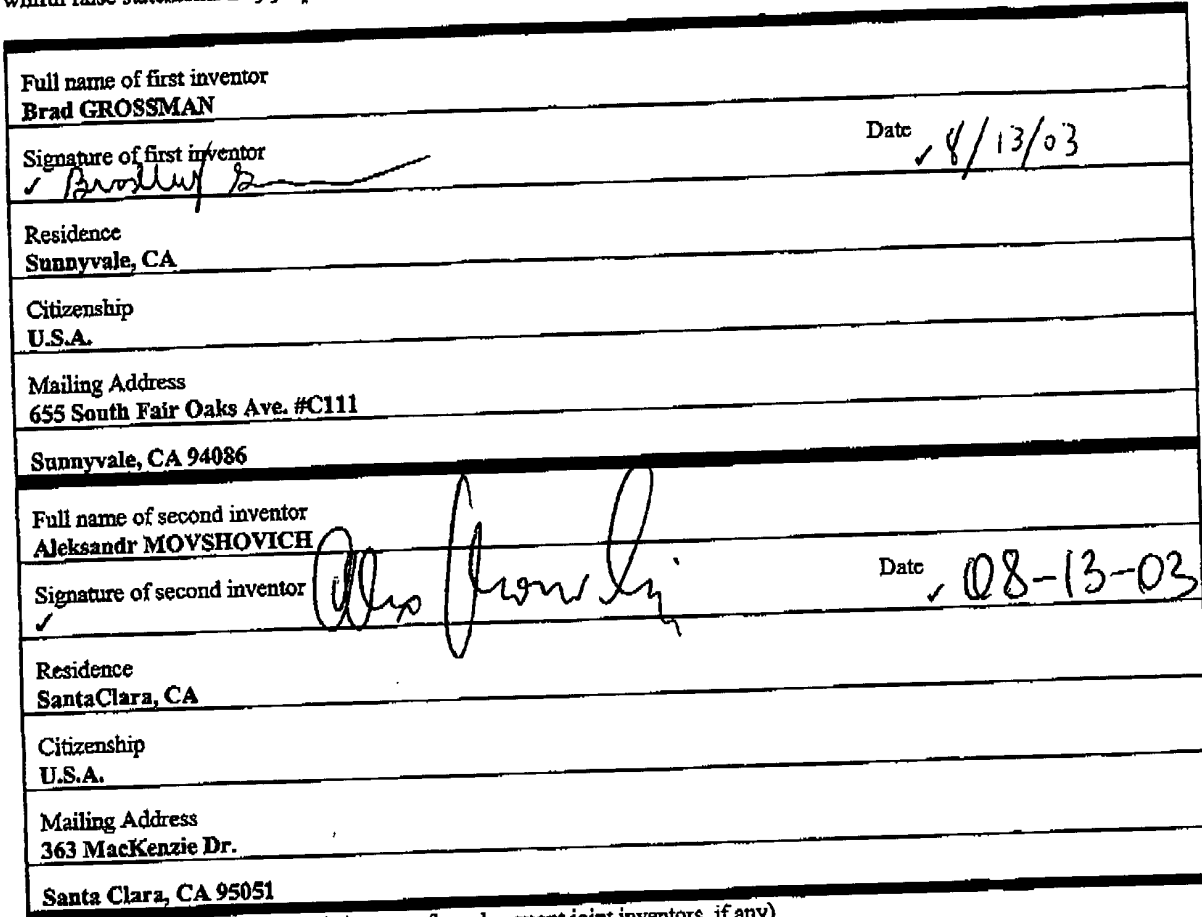 Full name of first inventor
Brad GROSSMAN
Signature of first inventor
Date ✓ 8/13/03
✓
Residence
Sunnyvale, CA
Citizenship
U.S.A.
Mailing Address
655 South Fair Oaks Ave. #C111
Sunnyvale, CA 94086
Full name of second inventor
Aleksandr MOVSHOVICH
Signature of second inventor
Date ✓ 08-13-03
✓
Residence
SantaClara, CA
Citizenship
U.S.A.
Mailing Address
363 MacKenzie Dr.
Santa Clara, CA 95051
joint inventors, if any)